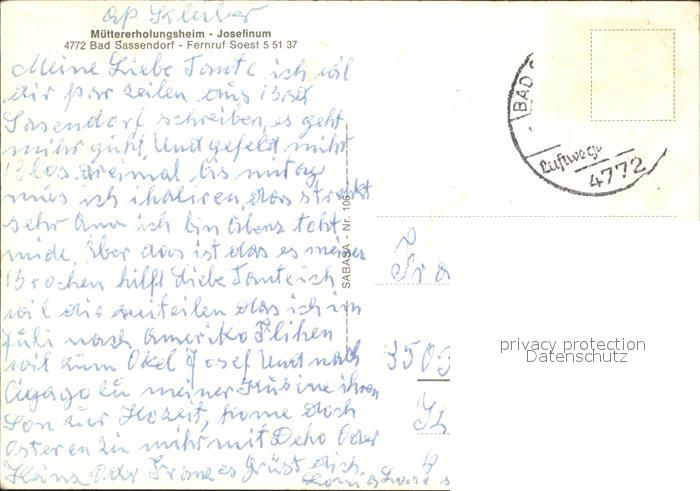 Müttererholungsheim - Josefinum
4772 Bad Sassendorf - Fernruf Soest 5 51 37
Meine Liebe Tante ich wil
dir par zeilen aus Bad
Sasendorf schreiben, es geht
mihr guht, Und gefeld mihr
Blos dreimal bis mitag
mus ich ihaliren, das strenkt
sehr an ich bin Abens toht
müde, Aber das ist das es meinen
Brochen hilft Liebe Tante ich
wil dir miteilen das ich im
Juli nach Amerika Flihen
wil zum Okel Josef Und nach
zu meiner Kusine ihren
Son zur Hozeit, kome doch
Osteren zu mihr mit Oder
Häns Oder Franz es Grüst dich
SABASA - Nr. 106
BAD
Luftwege
4772
Fra
3503
privacy protection
Datenschutz